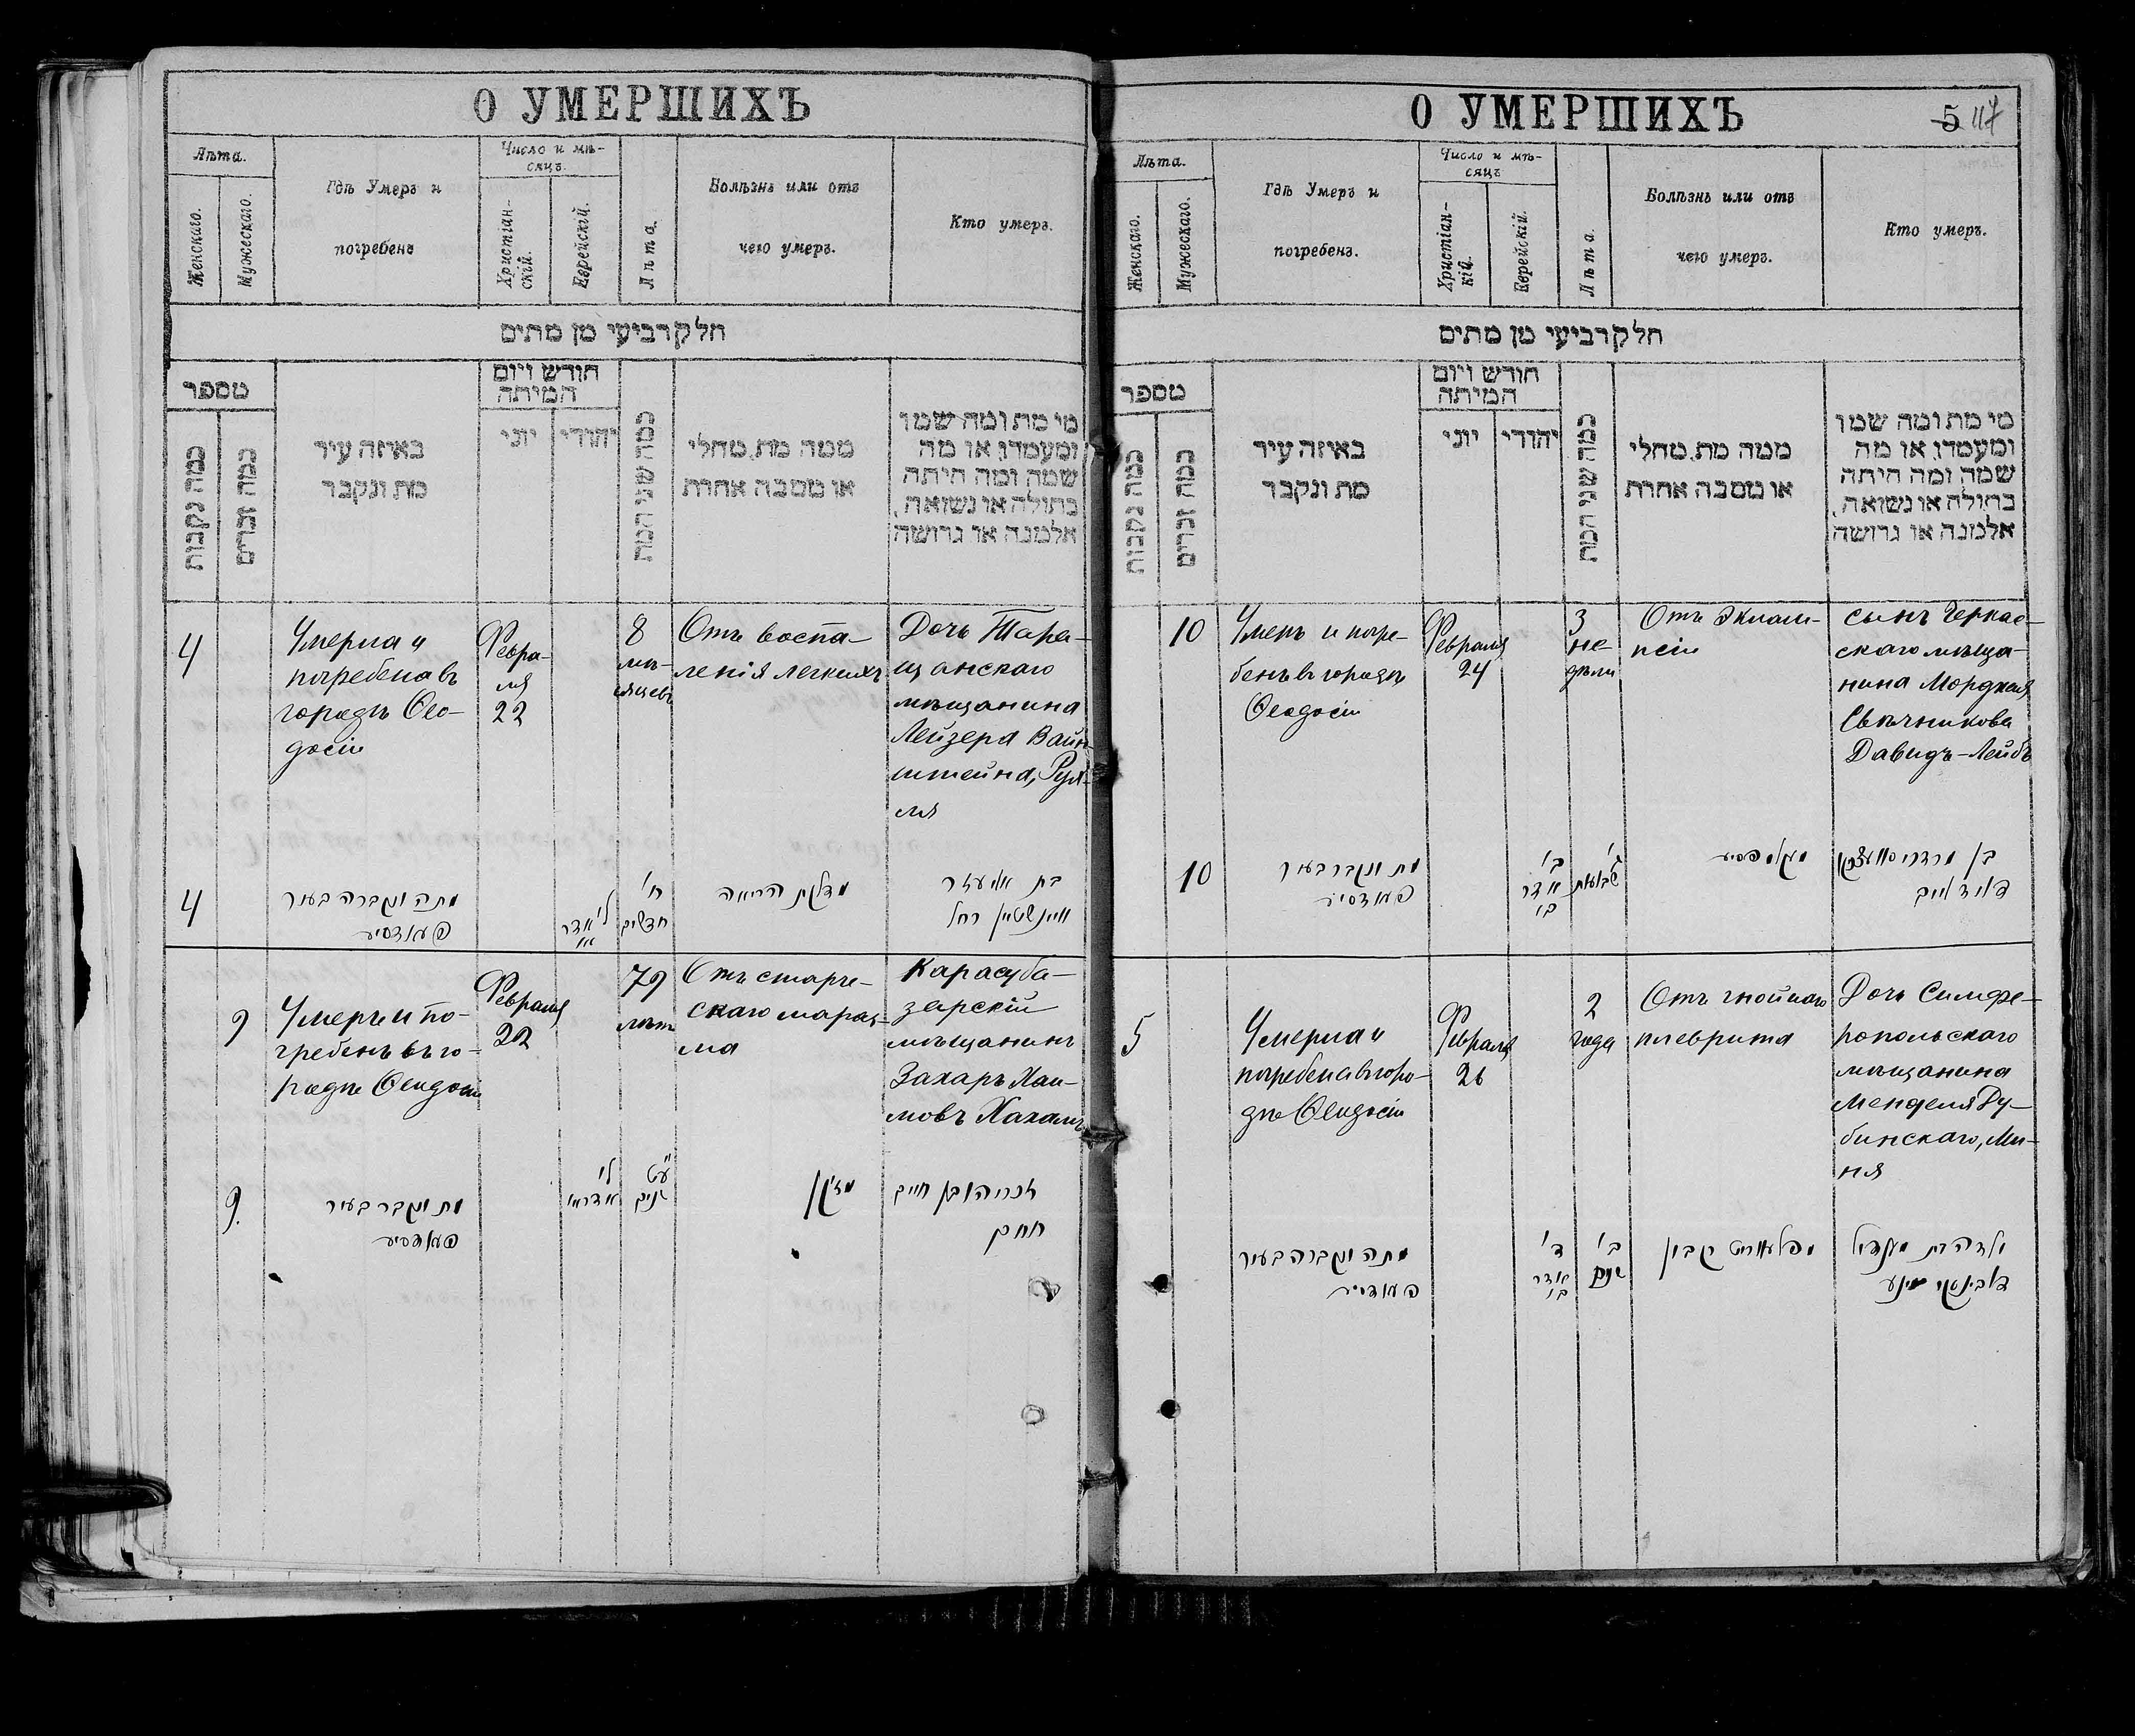 О УМЕРШИХЪ
Лѣта.
Женскаго.
Мужескаго.
Гдѣ Умеръ и
погребенъ
Число и мѣ-
сяцъ.
Христіан-
скій.
Еврейскій.
Лѣта.
Болѣзнь или отъ
чего умеръ.
Кто умеръ.
חלק רביעי מן מתים
מספר
כמה נקבות
כמה זכרים
באיזה עיר
מת ונקבר
חודש ויום
המיתה
יוני
יהודי
כמה שני המת
ממה מת, מחלי
או מסבה אחרת
מי מת ומה שמו
ומעמדו, או מה
שמה ומה היתה
בתולה או נשואה,
אלמנה או גרושה
4
Умерла и
погребена въ
городѣ Ѳео-
досіи
Февра-
ля
22
8
мѣ-
сяцевъ
Отъ воспа-
ленія легкихъ
Дочь Тара-
щанскаго
мѣщанина
Лейзера Вайн-
штейна, Рух-
ля
4
מתה ונקברה בעיר
פעאדסיע
ל' אדר
ח'
חדשים
מדלקת הריאה
בת אליעזר
וויינשטיין רחל
9
Умеръ и по-
гребенъ въ го-
родѣ Ѳеодосіи
Февраля
22
79
лѣт
Отъ старче-
скаго мараз-
ма
Карасуба-
зарскій
мѣщанинъ
Захаръ Хаи-
мовъ Хахамъ
9.
מת ונקבר בעיר
פעאדסיע
ל'
אדר א'
ע"ט
שנים
מזקן
זכריהו בן חיים
חחם
О УМЕРШИХЪ
5 117
Лѣта.
Женскаго.
Мужескаго.
Гдѣ Умеръ и
погребенъ.
Число и мѣ-
сяцъ
Христіан-
кій.
Еврейскій.
Лѣта.
Болѣзнь или отъ
чего умеръ.
Кто умеръ.
חלק רביעי מן מתים
מספר
כמה נקבות
כמה זכרים
באיזה עיר
מת ונקבר
חודש ויום
המיתה
יוני
יהודי
כמה שני המת
ממה מת, מחלי
או מסבה אחרת
מי מת ומה שמו
ומעמדו, או מה
שמה ומה היתה
בתולה או נשואה,
אלמנה או גרושה
10
Умеръ и погре-
бенъ въ городѣ
Ѳеодосіи
Февраля
24
3
не-
дѣли
Отъ Эклам-
псіи
сынъ Черкас-
скаго мѣща-
нина Мордхая
Свѣчникова
Давидъ-Лейбъ
10
מת ונקבר בעיר
פעודסיי
ב'
אדר
ב'
ג'
שבועות
בן מרדכי
דוד לייב
5
Умерла и
погребена въ горо-
дѣ Ѳеодосіи
Февраля
26
2
года
Отъ гнойнаго
плеврита
Дочь Симфе-
ропольскаго
мѣщанина
Менделя Ду-
бинскаго, Ми-
ня
מתה ונקברה בעיר
פעודסיי
ד'
אדר
ב'
ב'
שנים
ילדה בת מענדיל
דובינסקי מינע